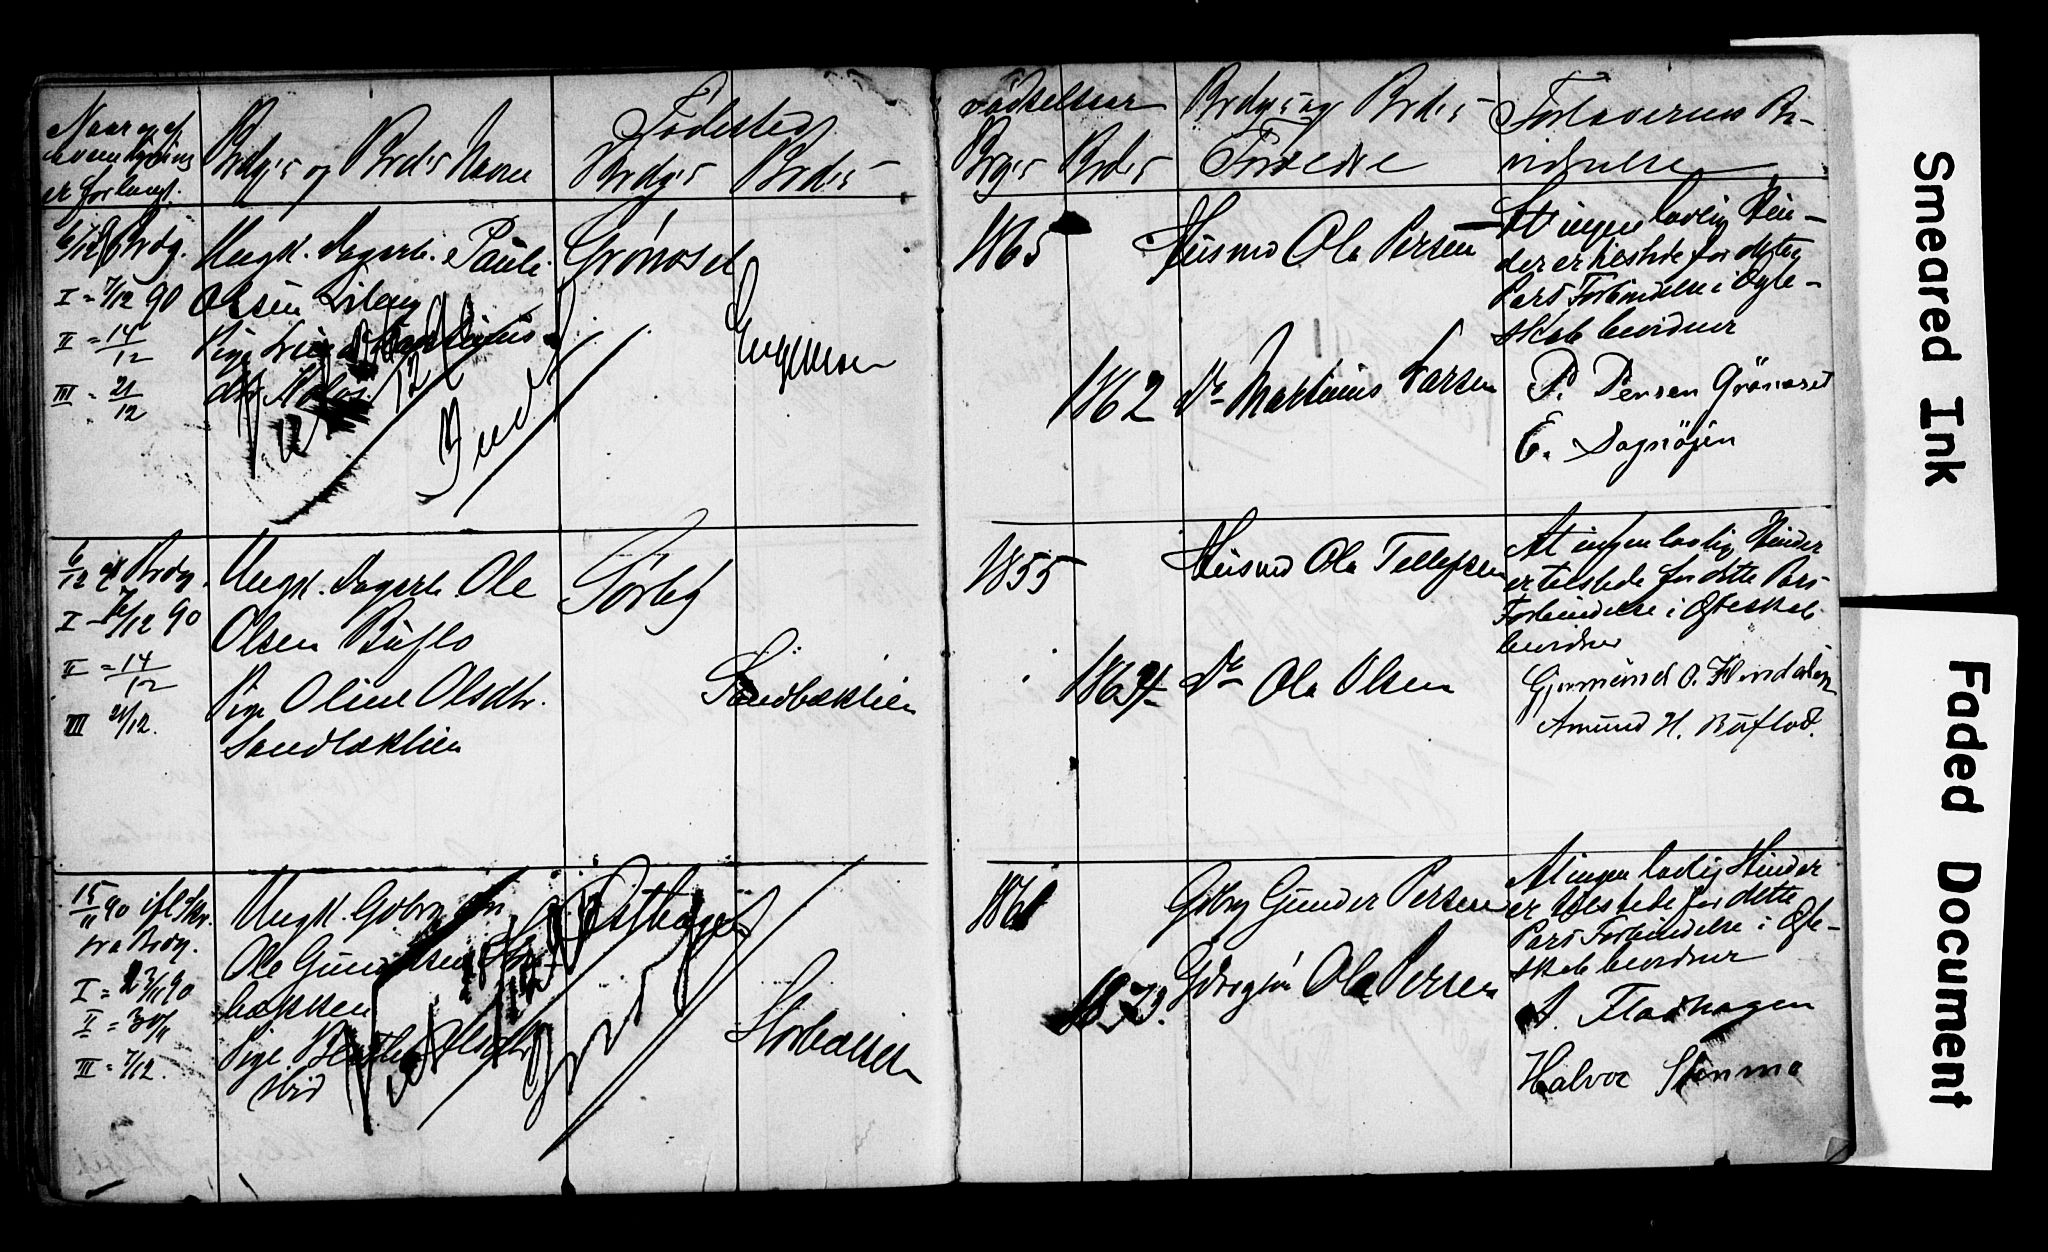 Naar og af
hvem Lysning
er forlangt.
Brdg's og Brd's Navne
Fødested
Brdg's Brd's
Fødselsaar
Brg's Brd's
Brdg's og Brd's
Forældre
Forlovernes Be-
vidnelse
6/12 af Brdg.
I = 7/12 90
II = 14/12
III = 21/12
Ungk. Dagarb. Pauli
Olsen
Pige
Grønoset
Engemoen
1865
1862
Husmd Ola Persen
Do Martinius Larsen
At ingen lovlig Hin-
der er tilstede for dette
Pars Forbindelse i Ægte-
skab bevidner
P. Persen Grönoset
E. Dagsöjen
6/12 af Brdg.
I = 7/12 90
II = 14/12
III 21/12.
Ungk. Dagarb. Ole
Olsen Buflo
Pige Oline Olsdtr.
Sandbæklien
Sørby
Sandbæklien
1855
Husmd Ola Tellefsen
Do Ola Olsen
At ingen lovlig Hinder
er tilstede for dette Pars
Forbindelse i Ægteskab
bevidner
O.
Amund H. Buflod.
15/11 90 ifl. Skr.
fra Brdg.
I = 23/11 90
II = 30/11
III = 7/12.
Ungk. Gdbr.søn
Ole Gundersen
bakken
Pige Olsdtr.
Østhagen
Storbækken
1861
1873.
Gdbrg Gunder Persen
Ola Persen
At ingen lovlig Hinder
er tilstede for dette
Pars Forbindelse i Ægte-
skab bevidner
Fladhagen
Halvor Stenmo
Smeared Ink
Faded Document